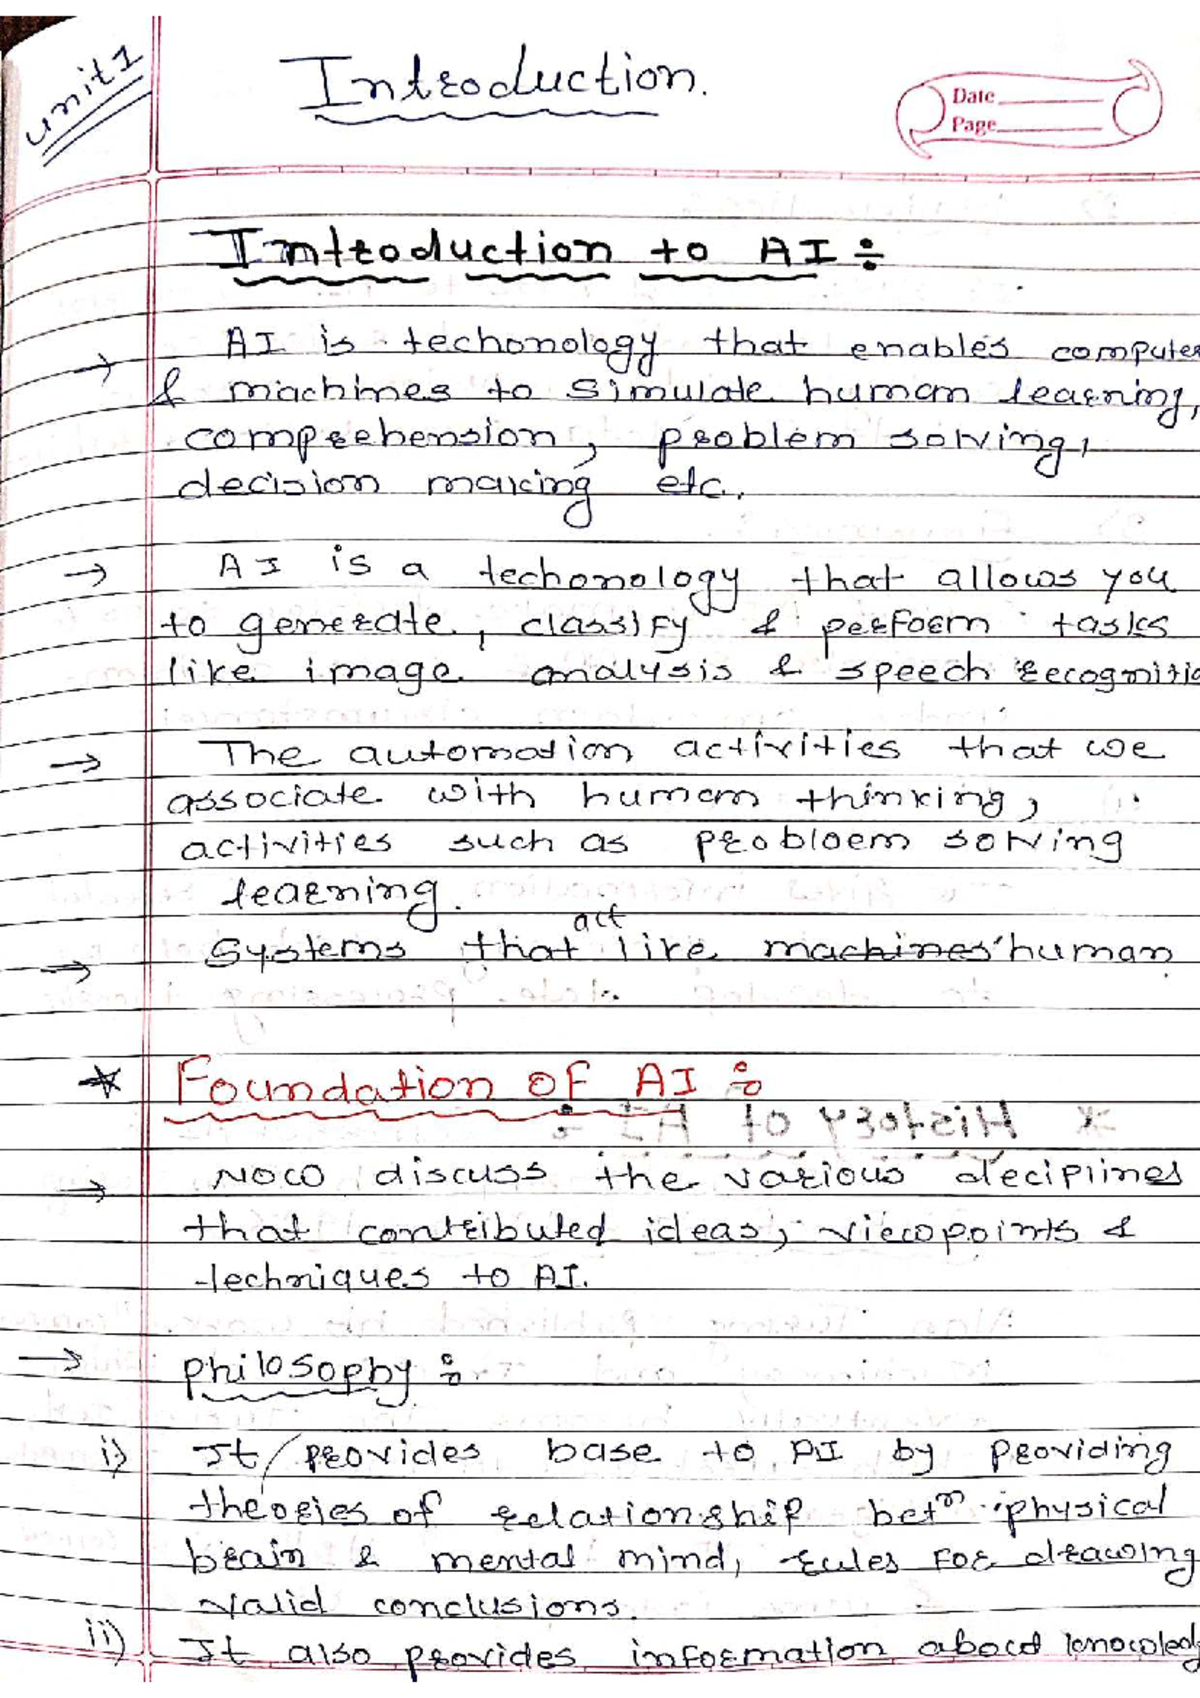 unit 1
Introduction.
Date
Page
Introduction to AI ÷
→ AI is techonology that enables compute
& machines to simulate human learning,
comprehension, problem solving,
decision making etc.
→ AI is a techonology that allows you
to generate, classify & perform tasks
like image analysis & speech recognitio
→ The automation activities that we
associate with human thinking,
activities such as probloem solving
learning.
act
→ Systems that like machines human
* Foundation of AI ÷
* History of AI ÷
→ Now discuss the various deciplines
that contributed ideas, viewpoints &
techniques to AI.
→ philosophy ÷
i) It provides base to AI by providing
theories of relationship betn physical
brain & mental mind, rules for drawing
valid conclusions.
ii) It also provides information about knowledg